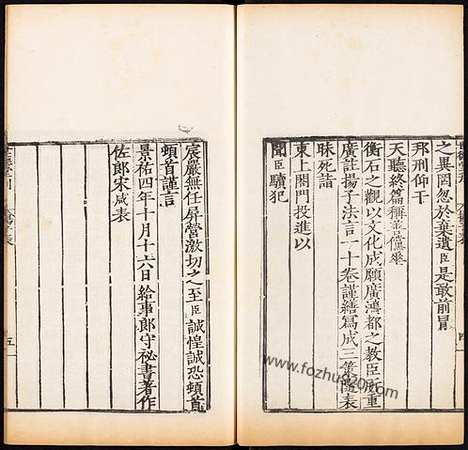 之異罔忽於棄遺臣是敢前冒
邦刑仰干
天聽終篇稱善儻垂
衡石之觀以文化成願廣鴻都之教臣咸重
廣註揚子法言一十卷謹繕寫成三策隨表
東上閤門投進以
聞臣黷犯
宸嚴無任屏營激切之至臣誠惶誠恐頓首
頓首謹言
景祐四年十月十六日給事郎守祕書著作
佐郎宋咸表
四
五
www.fozhu920.com